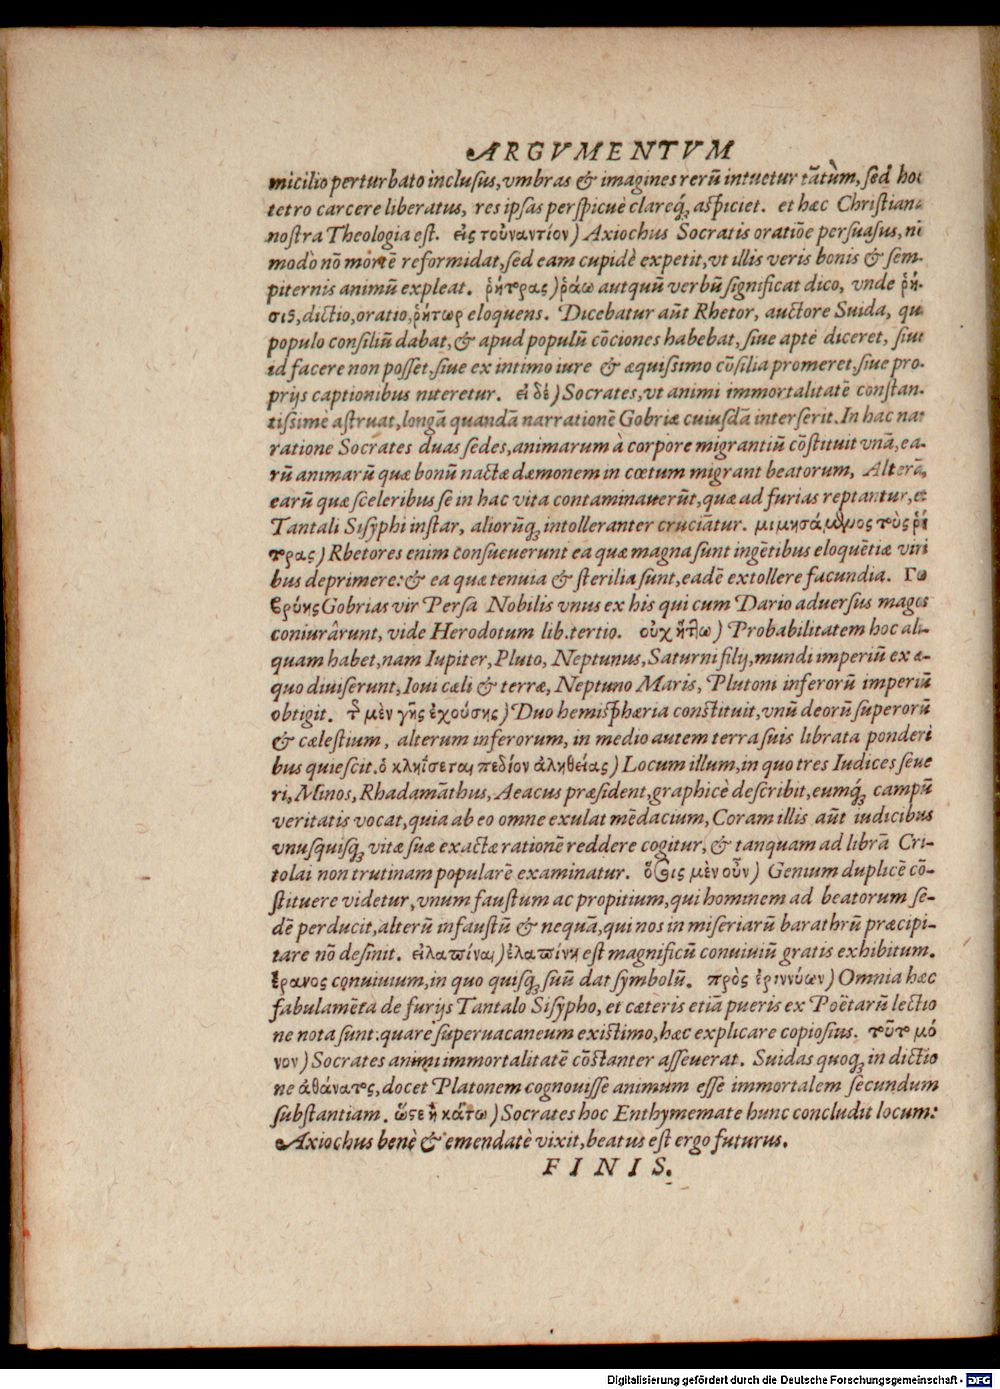 ARGVMENTVM
micilio perturbato inclusus, vmbras & imagines rerū intuetur tātùm, sed hoc
tetro carcere liberatus, res ipsas perspicuè clareq́; aspiciet. et hæc Christiana
nostra Theologia est. εἰς τοὐναντίον) Axiochus Socratis oratiōe persuasus, nō
modo nō mortē reformidat, sed eam cupidè expetit, vt illis veris bonis & sem-
piternis animū expleat. ῥήτρας) ῥάω autquū verbū significat dico, vnde ῥῆ-
σις, dictio, oratio, ῥήτωρ eloquens. Dicebatur aūt Rhetor, auctore Suida, qui
populo consiliū dabat, & apud populū cōciones habebat, siue aptè diceret, siue
id facere non posset, siue ex intimo iure & æquissimo cōsilia promeret, siue pro-
prijs captionibus niteretur. εἰ δέ) Socrates, vt animi immortalitatē constan-
tissime astruat, longā quandā narrationē Gobriæ cuiusdā interserit. In hac nar
ratione Socrates duas sedes, animarum à corpore migrantiū cōstituit vnā, ea-
rū animarū quæ bonū nactæ dæmonem in cœtum migrant beatorum, Alterā,
earū quæ sceleribus se in hac vita contaminauerūt, quæ ad furias reptantur, et
Tantali Sisyphi instar, aliorūq; intolleranter cruciātur. μιμησάμϙνος τοὺς ῥή
τρας) Rhetores enim consueuerunt ea quæ magna sunt ingētibus eloquētiæ viri
bus deprimere: & ea quæ tenuia & sterilia sunt, eadē extollere facundia. Γω
βρύης Gobrias vir Persa Nobilis vnus ex his qui cum Dario aduersus magos
coniurârunt, vide Herodotum lib. tertio. οὐχ ἥτλω) Probabilitatem hoc ali-
quam habet, nam Iupiter, Pluto, Neptunus, Saturni filij, mundi imperiū ex æ-
quo diuiserunt, Ioui cæli & terræ, Neptuno Maris, Plutoni inferorū imperiū
obtigit. τ͂ μὲν γῆς ἐχούσης) Duo hemisphæria constituit, vnū deorū superorū
& cælestium, alterum inferorum, in medio autem terra suis librata ponderi
bus quiescit. ὁ κληΐσεται πεδίον ἀληθείας) Locum illum, in quo tres Iudices seue
ri, Minos, Rhadamāthus, Aeacus præsident, graphicè describit, eumq́; campū
veritatis vocat, quia ab eo omne exulat mēdacium, Coram illis aūt iudicibus
vnusquisq; vitæ suæ exactæ rationē reddere cogitur, & tanquam ad librā Cri-
tolai non trutinam popularē examinatur. ὅσοις μὲν οὖν) Genium duplicē cō-
stituere videtur, vnum faustum ac propitium, qui hominem ad beatorum se-
dē perducit, alterū infaustū & nequā, qui nos in miseriarū barathrū præcipi-
tare nō desinit. εἰλαπίναι) ἐλαπίνη est magnificū conuiuiū gratis exhibitum.
ἔρανος conuiuium, in quo quisq; suū dat symbolū. πρὸς ἐριννύων) Omnia hæc
fabulamēta de furijs Tantalo Sisypho, et cæteris etiā pueris ex Poëtarū lectio
ne nota sunt: quare superuacaneum existimo, hæc explicare copiosius. τοῦτ μό
νον) Socrates animi immortalitatē cōstanter asseuerat. Suidas quoq; in dictio
ne ἀθάνατς, docet Platonem cognouisse animum esse immortalem secundum
substantiam. ὥστε ἢ κάτω) Socrates hoc Enthymemate hunc concludit locum:
Axiochus benè & emendatè vixit, beatus est ergo futurus.
FINIS.
Digitalisierung gefördert durch die Deutsche Forschungsgemeinschaft - DFG